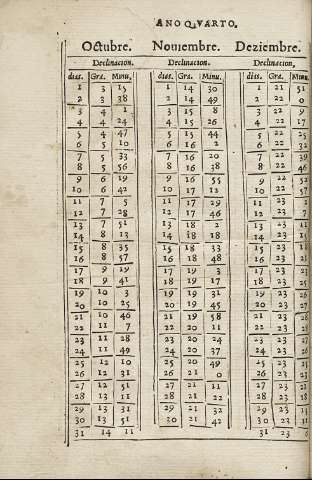 ANO QVARTO.
Octubre. Nouiembre. Deziembre.
Declinacion. Declinacion. Declinacion.
dias. Gra. Minu. dias. Gra. Minu. dias. Gra. Minu.
1 3 15 1 14 30 1 21 51
2 3 38 2 14 49 2 22 0
3 4 1 3 15 8 3 22 9
4 4 24 4 15 26 4 22 17
5 4 47 5 15 44 5 22 25
6 5 10 6 16 2 6 22 32
7 5 33 7 16 20 7 22 39
8 5 56 8 16 38 8 22 46
9 6 19 9 16 55 9 22 52
10 6 42 10 17 12 10 22 57
11 7 5 11 17 29 11 23
12 7 28 12 17 46 12 23
13 7 51 13 18 2 13 23
14 8 13 14 18 18 14 23
15 8 35 15 18 33 15 23
16 8 57 16 18 48 16 23
17 9 19 17 19 3 17 23
18 9 41 18 19 17 18 23
19 10 3 19 19 31 19 23
20 10 25 20 19 45 20 23
21 10 46 21 19 58 21 23
22 11 7 22 20 11 22 23
23 11 28 23 20 24 23 23
24 11 49 24 20 37 24 23
25 12 10 25 20 49 25 23
26 12 31 26 21 0 26 23
27 12 51 27 21 11 27 23
28 13 11 28 21 22 28 23
29 13 31 29 21 32 29 23
30 13 51 30 21 42 30 23
31 14 11 31 23